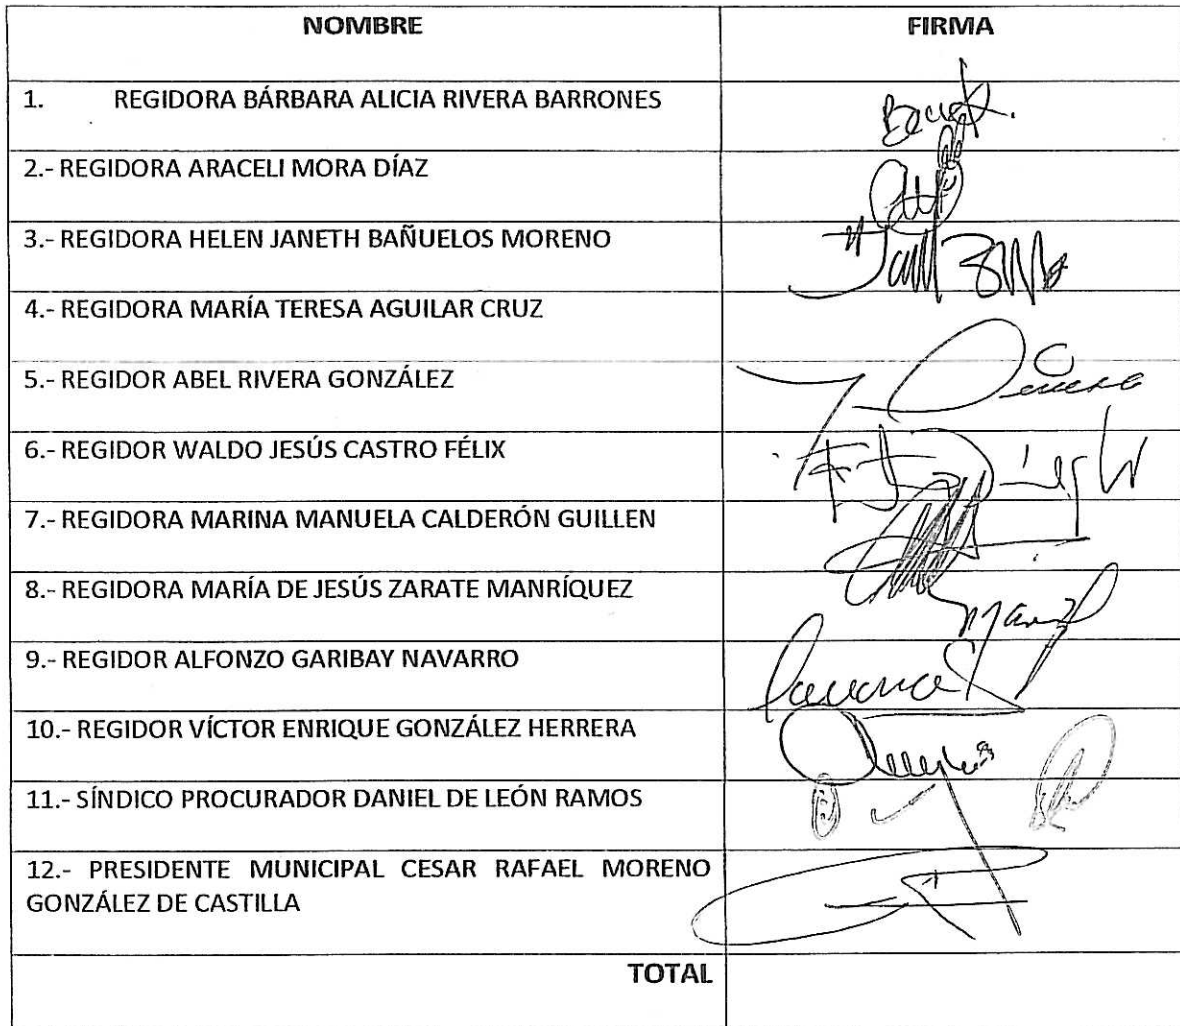 NOMBRE FIRMA
1. REGIDORA BÁRBARA ALICIA RIVERA BARRONES
2.- REGIDORA ARACELI MORA DÍAZ
3.- REGIDORA HELEN JANETH BAÑUELOS MORENO
4.- REGIDORA MARÍA TERESA AGUILAR CRUZ
5.- REGIDOR ABEL RIVERA GONZÁLEZ
6.- REGIDOR WALDO JESÚS CASTRO FÉLIX
7.- REGIDORA MARINA MANUELA CALDERÓN GUILLEN
8.- REGIDORA MARÍA DE JESÚS ZARATE MANRÍQUEZ
9.- REGIDOR ALFONZO GARIBAY NAVARRO
10.- REGIDOR VÍCTOR ENRIQUE GONZÁLEZ HERRERA
11.- SÍNDICO PROCURADOR DANIEL DE LEÓN RAMOS
12.- PRESIDENTE MUNICIPAL CESAR RAFAEL MORENO
GONZÁLEZ DE CASTILLA
TOTAL